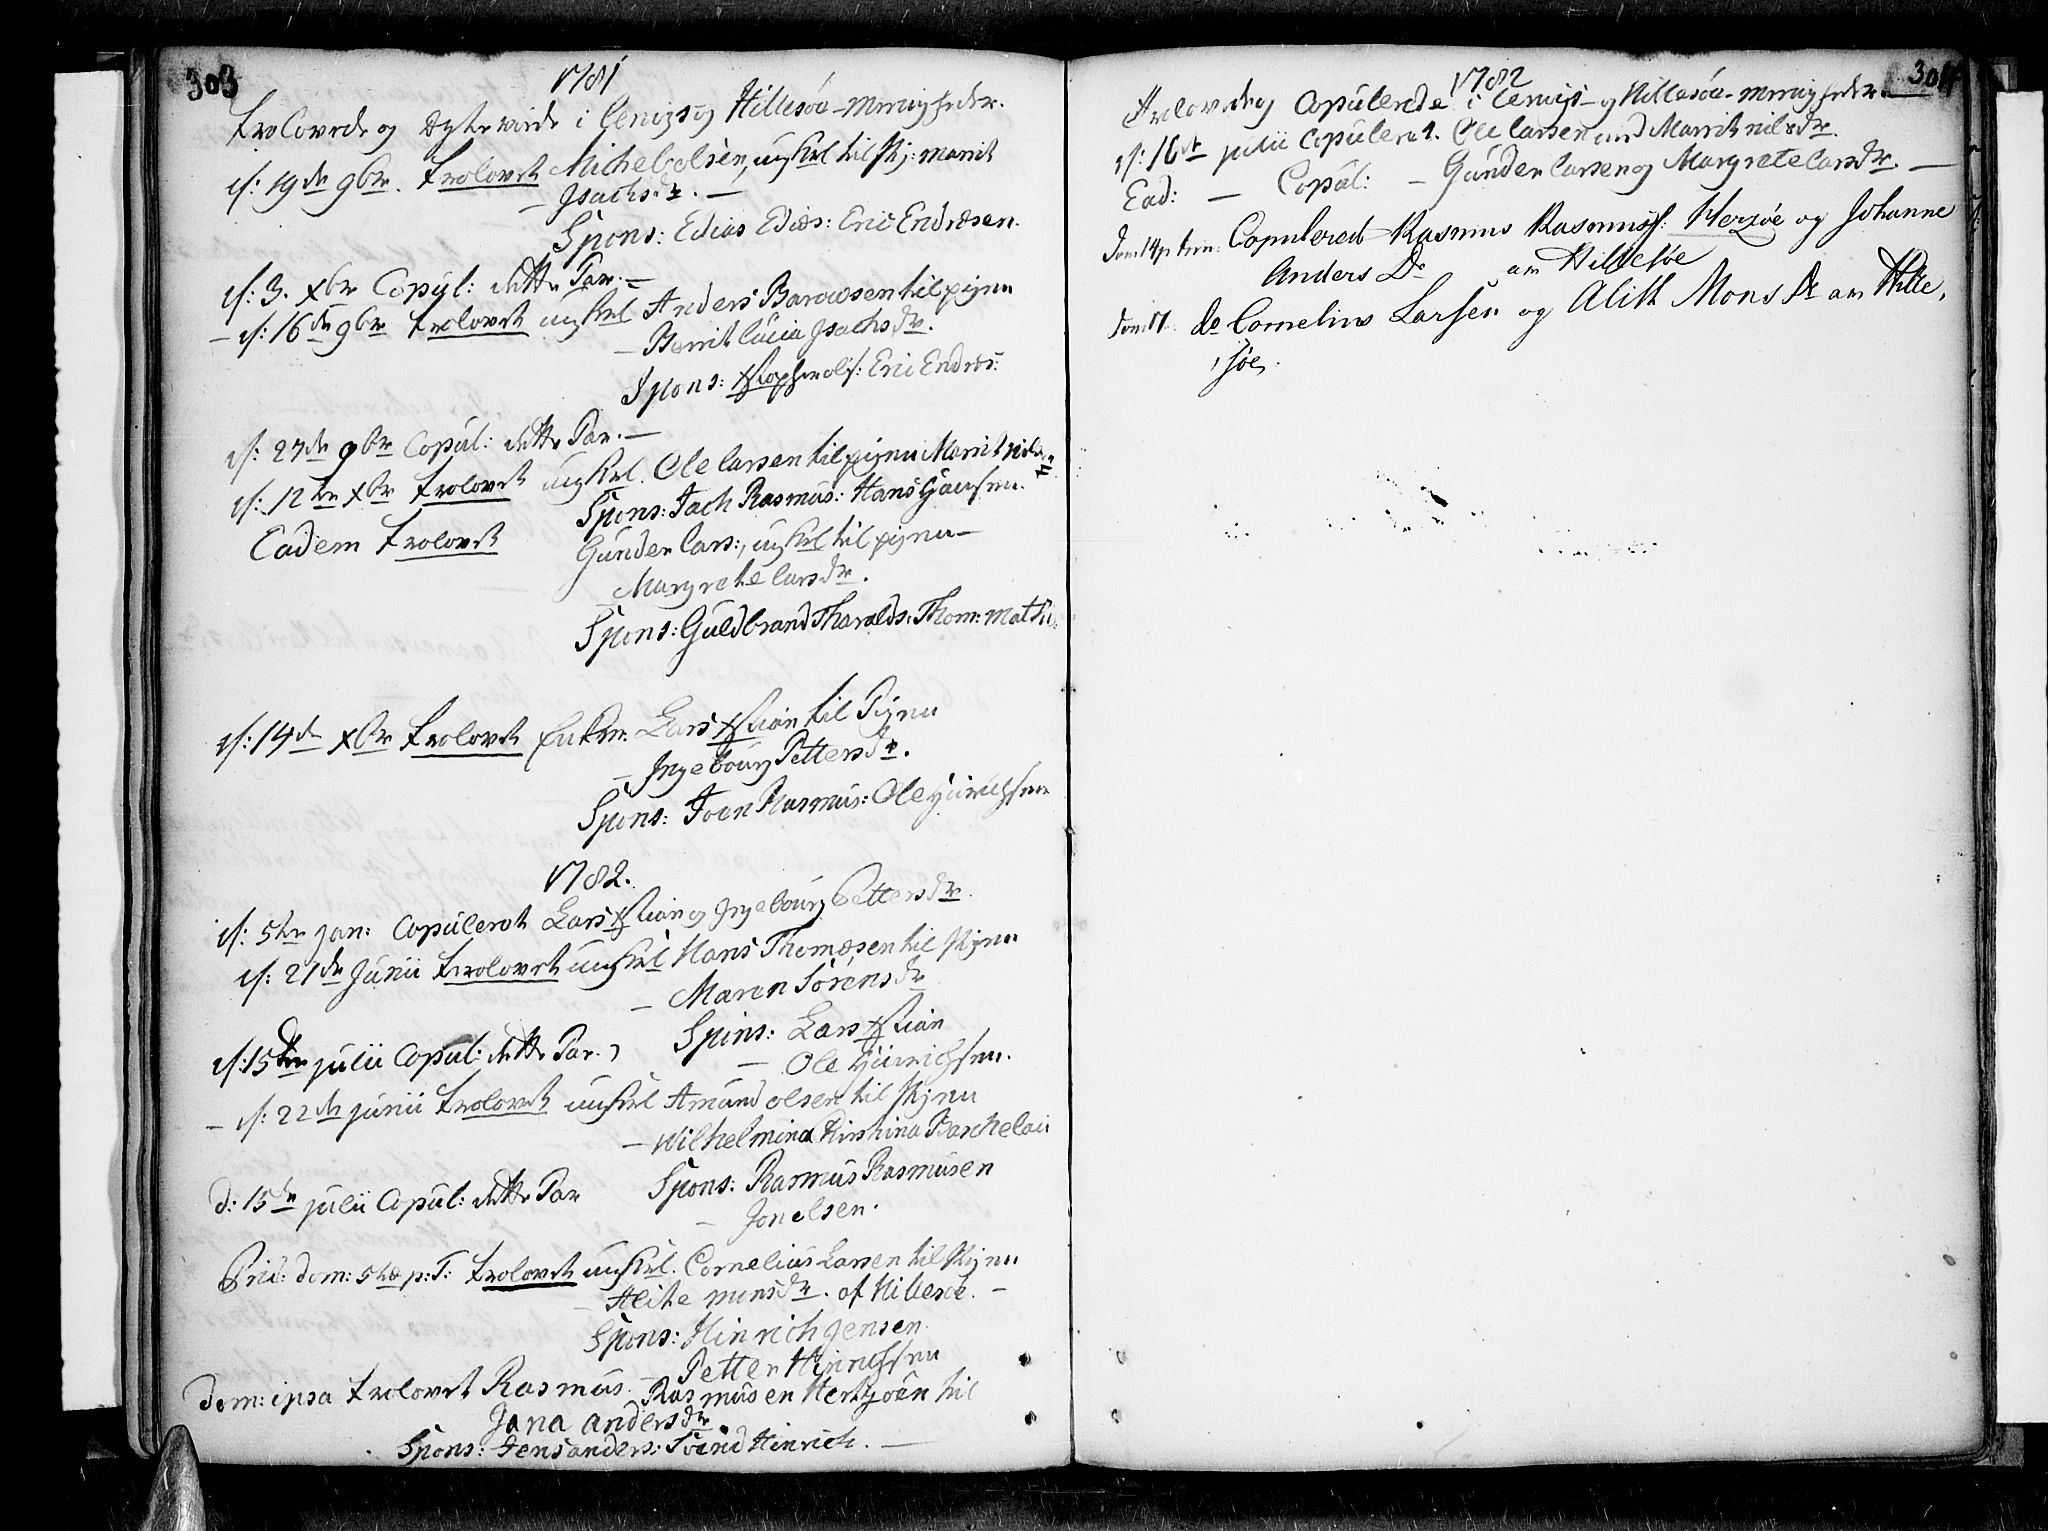 303
1781
Trolovede og Egteviede i Lenvigs og Hillesøe-Menigheder.
d: 19de 9br. Trolovet Michel olsen, ungkrl til Pig: Marit
- Isachsdr. -
Spons: Edias Edies: Eric Endresen.
d: 3. Xbr Copul: dette Par. -
- d: 16de 9br Trolovet ungkrl Anders Barowsen til pigen
- Berrit Lucia Isachsdr.
Spons: Xstopher ols: Eric Endres:
d: 27de 9br Copul: dette Par. -
d: 12te Xbr Trolovet ungkrl. Ole Larsen til pigen Marrit Nilsdr
Spons: Jach Rasmus: Hans Hansen.
Eadem Trolovet Gunder Lars:, ungkrl til pigen -
- Margrete Larsdr.
Spons: Guldbrand Tharalds: Thom: Mathi:
d: 14de Xbr Trolovet Enkm: Lars Xstian til Pigen
- Ingebourg Pettersdr.
Spons: Joen Rasmus: Ole Hinrichsen
1782.
d: 5te Jan: Copuleret Lars Xstian og Ingebourg Pettersdr.
d: 21de Junii Trolovet ungkrl Hans Thomesen til Pigen
- Maren Sørensdr
Spons: Lars Xstian
d: 15de julii Copul: dette Par.
- Ole Hinrichsen.
- d: 22de junii Trolovet ungkrl Amund olsen til Pigen
- Wilhelmina Kirstina
Spons: Rasmus Rasmusen
d: 15de julii Copul: dette Par
- Jon olsen.
Prid: dom: 5tæ p: T: Trolovet ungkrl. Cornelius Larsen til Pigen
- Alite monsdr. af Hillesøe. -
Spons: Hinrich Jensen.
- Petter Hinrichsen
Dom: ipsa Trolovet Rasmus Rasmusen Hertzøen til
Jana andersdr.
Spons: Jens anders: Hinrich. -
304
1782
Trolovede og Copulerede i Lenvigs- og Hillesøe-Menigheder.
d: 16de julii Copuleret. Ole Larsen med Marrit nilsdr.
Ead: - Copul: - Gunder Larsen og Margrete Larsdr. -
Dom 14 p trin: Copulered Rasmus Rasmuss: Herzøe og Johanne
Anders Dr an Hillesøe
Dom 17 do Cornelius Larsen og Alitt Mons Dr an Hille,
,søe.